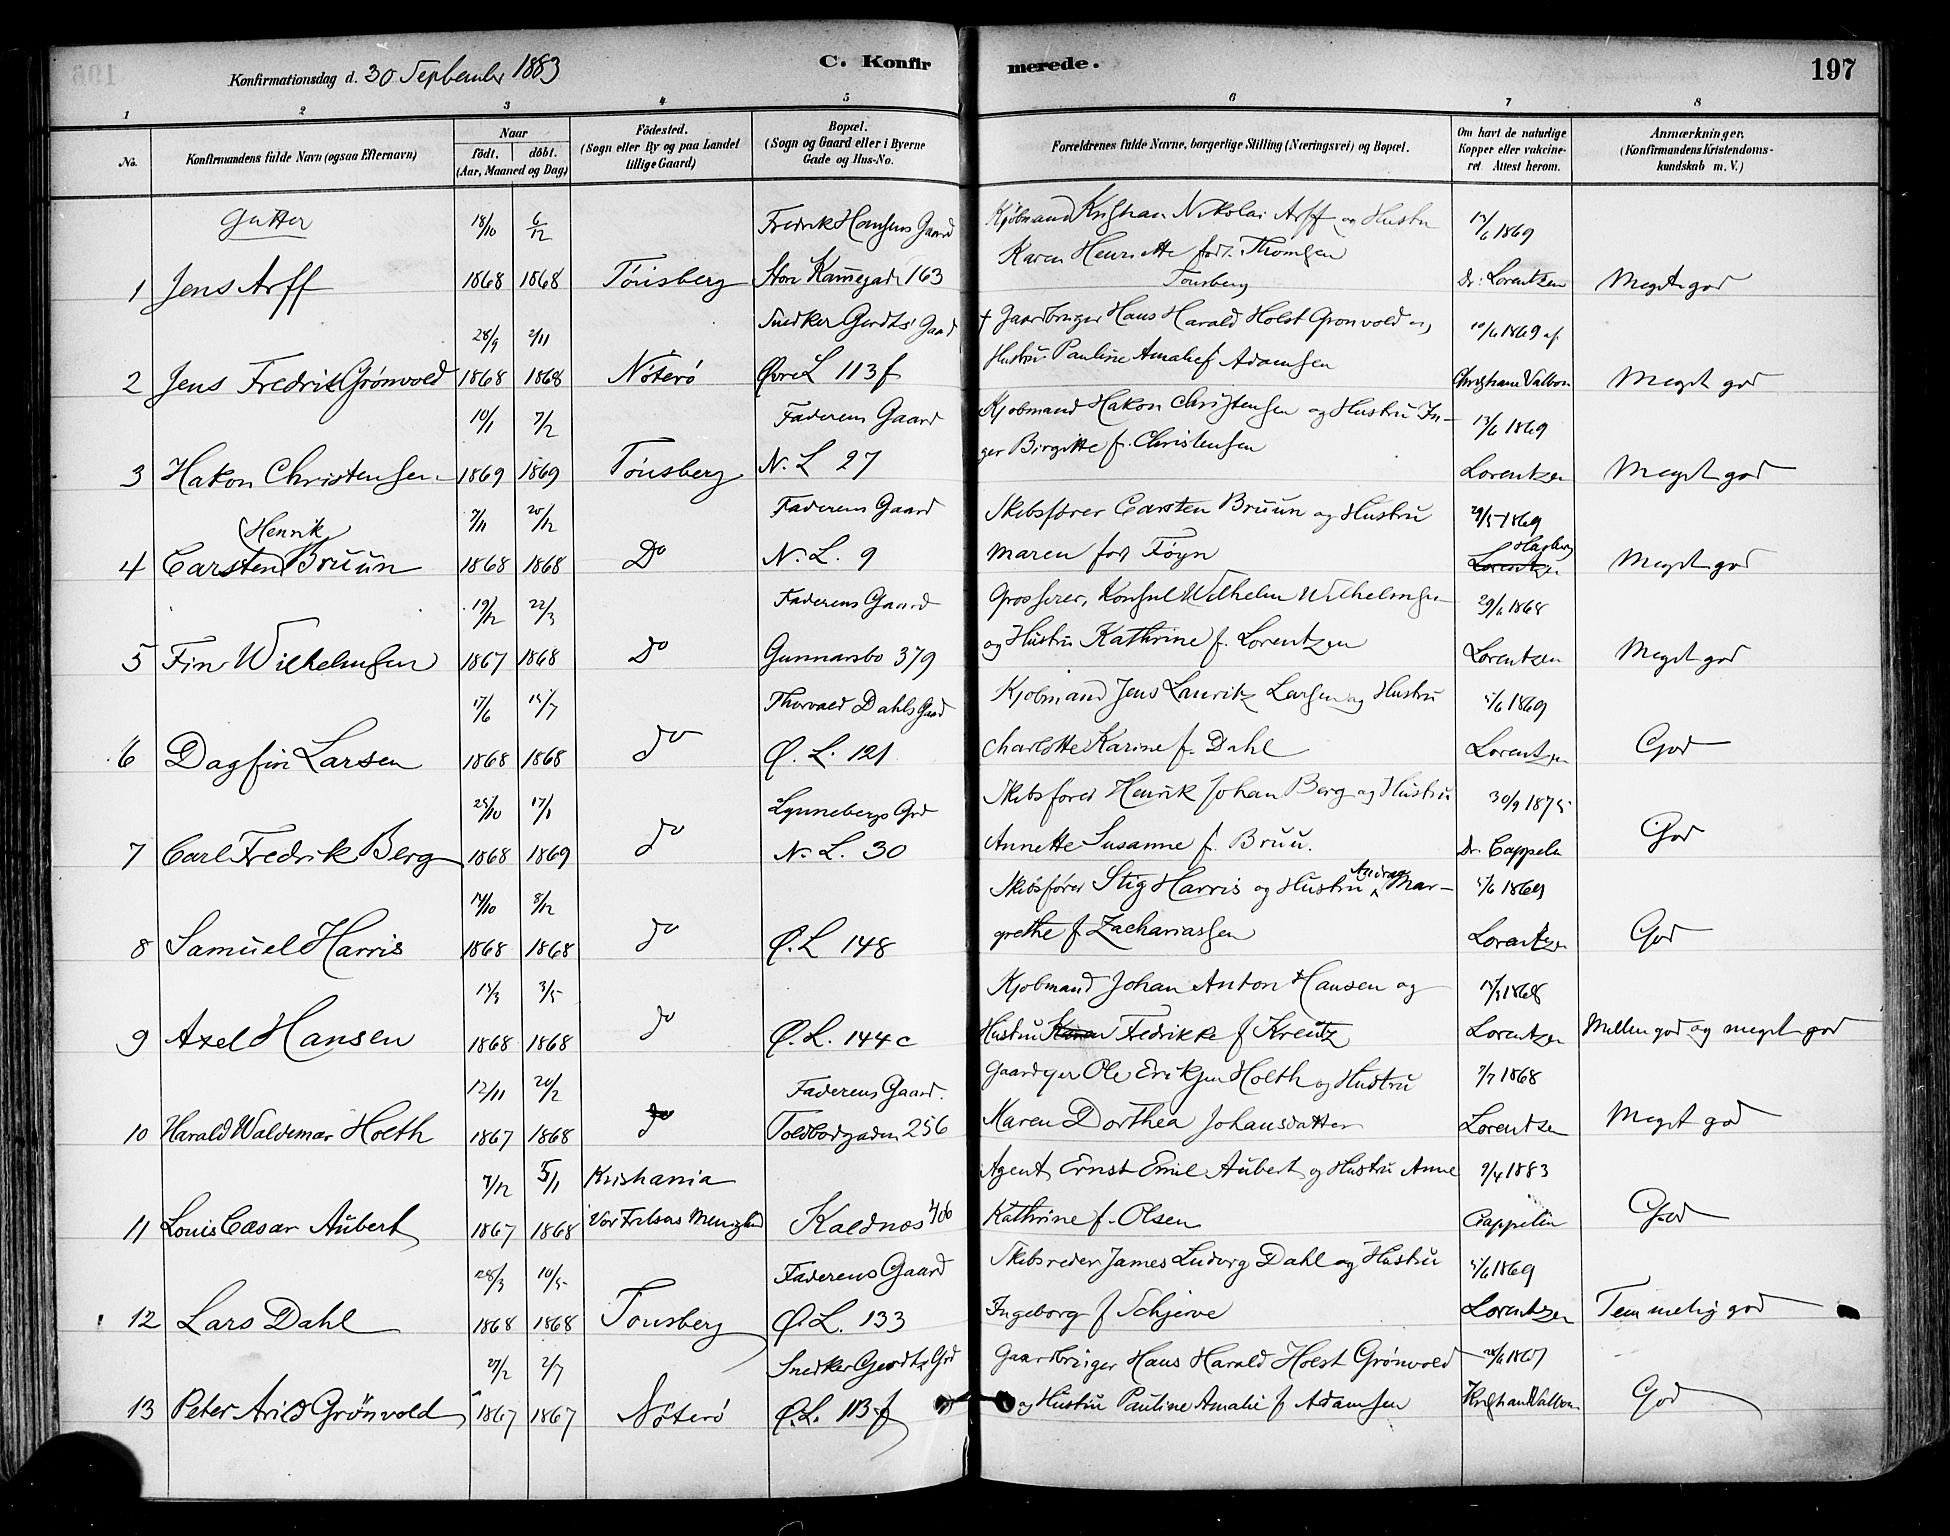 Konfirmationsdag d. 30 September 1883
C. Konfirmerede.
197
1 2 3 4 5 6 7 8
No.
Konfirmandens fulde Navn (ogsaa Efternavn)
Naar
födt. döbt.
(Aar, Maaned og Dag)
Födested.
(Sogn eller By og paa Landet
tillige Gaard)
Bopæl.
(Sogn og Gaard eller i Byerne
Gade og Hus-No.
Forældrenes fulde Navne, borgerlige Stilling (Næringsvei) og Bopæl.
Om havt de naturlige
Kopper eller vakcine-
ret Attest herom.
Anmærkninger.
(Konfirmandens Kristendoms-
kundskab m. V.)
Gutter 18/10 6/12 Fredrik Hansens Gaard Kjøbmand Kristian Nikolai Arff og Hustru 17/6 1869
Karen Henriette født Thomsen
1 Jens Arff 1868 1868 Tönsberg Store Kannegade 163 Tønsberg Dr. Lorentzen Meget god
28/9 2/11 Snedker Gerdts' Gaard + Gaardbruger Hans Harald Holst Grønvold og 10/6 1869 af
Hustru Pauline Amalie f Adamsen
2 Jens Fredrik Grønvold 1868 1868 Nöterö Øvre L 113 f Christiane Valbom Meget god
10/1 7/2 Faderens Gaard Kjøbmand Hakon Christensen og Hustru In-
ger Birgitte f. Christensen 17/6 1869
3 Hakon Christensen 1869 1869 Tönsberg N. L 27 Lorentzen Meget god
7/11 20/12 Faderens Gaard Skibsfører Carsten Bruun og Hustru 29/5 1869
Henrik
4 Carsten Bruun 1868 1868 Do N. L. 9 Maren fød Føyn Lorentzen Meget god
19/12 22/3 Faderens Gaard Grosserer, Konsul Wilhelm Wilhelmsen 29/6 1868
5 Fin Wilhelmsen 1867 1868 Do Gunnarsbo 379 og Hustru Kathrine f. Lorentzen Lorentzen Meget god
17/6 15/7 Thorvald Dahls Gaard Kjøbmand Jens Lauritz Larsen og Hustru 5/6 1869
6 Dagfin Larsen 1868 1868 do Ø. L. 121 Charlotte Karine f. Dahl Lorentzen God
25/10 17/1 Lynnebergs Grd Skibsfører Henrik Johan Berg og Hustru 30/9 1875
7 Carl Fredrik Berg 1868 1869 do N. L. 30 Annette Susanne f. Bruu. Dr. Cappelen God
14/10 8/12 Skibsfører Stig Harris og Hustru Andrea Mar- 5/6 1869
8 Samuel Harris 1868 1868 do Ø. L 148 grethe f Zachariassen Lorentzen God
13/3 3/5 Kjøbmand Johan Anton Hansen og 17/9 1868
9 Axel Hansen 1868 1868 do Ø. L. 144 c Hustru Karen Fredrikke f Kreutz Lorentzen Mellem god og meget god
12/11 20/2 Faderens Gaard. Gaardejer Ole Eriksen Holth og Hustru 7/7 1868
10 Harald Waldemar Holth 1867 1868 do Toldbodgaden 256 Maren Dorthea Johansdatter Lorentzen Meget god
7/12 5/1 Kristiania Agent Ernst Emil Aubert og Hustru Anne 9/4 1883
11 Louis Cæsar Aubert 1867 1868 Vor Frelsers Menighed Kaldnæs 400 Kathrine f. Olsen Cappelen God
28/3 10/5 Faderens Gaard Skibsreder James Ludvig Dahl og Hustru 5/6 1869
12 Lars Dahl 1868 1868 Tönsberg Ø. L. 133 Ingeborg f Schjerve Lorentzen Temmelig god
27/2 2/7 Snedker Gerdts Grd Gaardbruger Hans Harald Holst Grønvold 28/6 1867
13 Peter Arild Grönvold 1867 1867 Nöterö Ø. L. 113 f og Hustru Pauline Amalie f Adamsen Kristian Valbom God